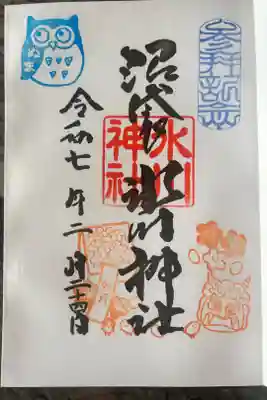 参拝記念
沼袋氷川神社
氷川
神社
令和七年二月二十四日
ぬま